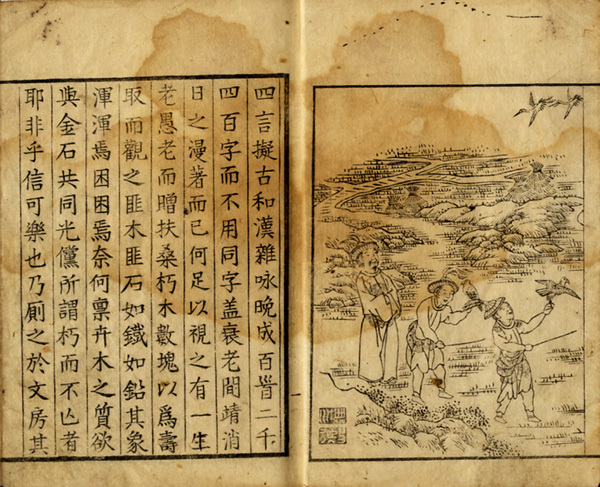 四言擬古和漢雜咏晚成百首二千
四百字而不用同字盖衰老間靖消
日之漫著而已何足以視之有一生
老愚老而贈扶桑朽木數塊以爲壽
取而觀之匪木匪石如鐵如鉛其象
渾渾焉困困焉奈何禀卉木之質欲
與金石共同光儻所謂朽而不亾者
耶非乎信可樂也乃厠之於文房其